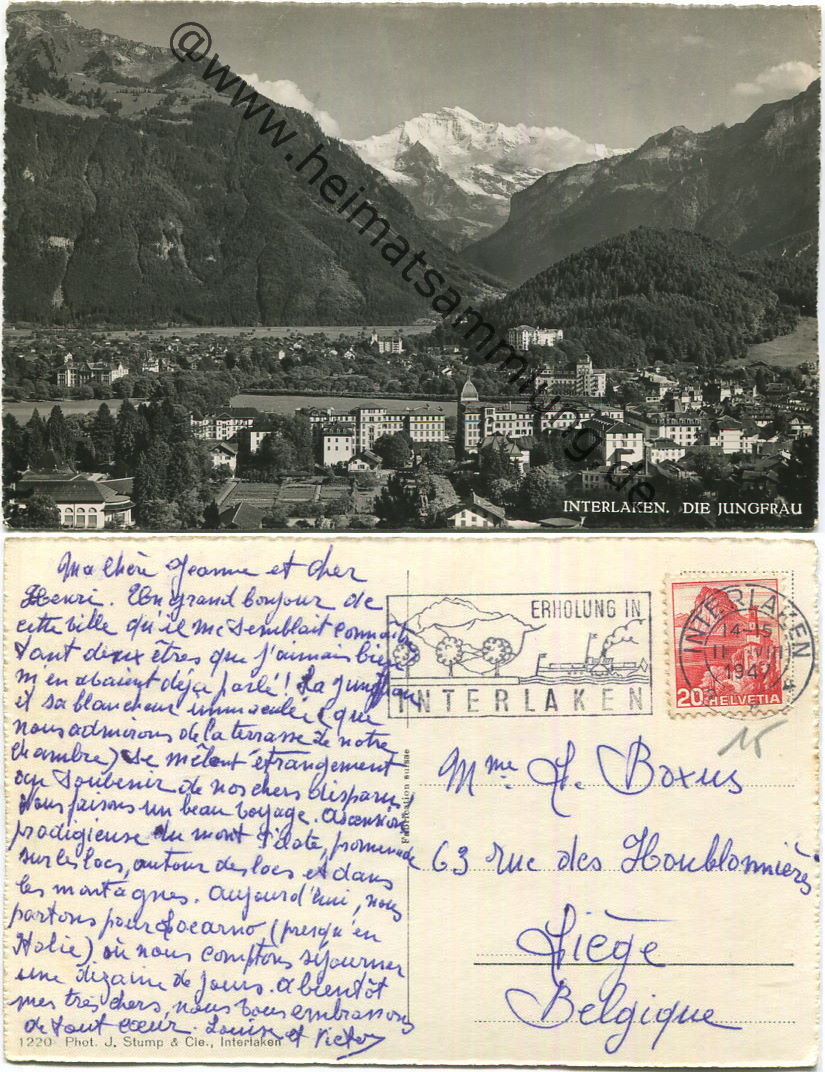 @www.heimatsammlung.de
INTERLAKEN. DIE JUNGFRAU
Ma Chère Jeanne et cher
Henri. Un grand bonjour de
cette ville qu'il me semblait connaître
tant deux êtres que j'aimais bien
m'en avaient déjà parlé! La Jungfrau
et sa blancheur immaculée (que
nous admirons de la terrasse de notre
chambre) se mêlent étrangement
au souvenir de nos chers disparus
Nous faisons un beau voyage. Ascension
prodigieuse du mont Pilate, promenade
sur les lacs, autour des lacs et dans
les montagnes. Aujourd'hui, nous
partons pour Locarno (presqu'en
Italie) où nous comptons séjourner
une dizaine de jours. A bientôt
mes très chers, nous vous embrassons
de tout cœur. Louise et Victor
1220 Phot. J. Stump & Cie., Interlaken
Fabrication suisse
ERHOLUNG IN
INTERLAKEN
INTERLAKEN
14-15
11 VIII
1947
20 HELVETIA
15
Mme. J. Boxus
63 rue des Houblonnières
Liège
Belgique